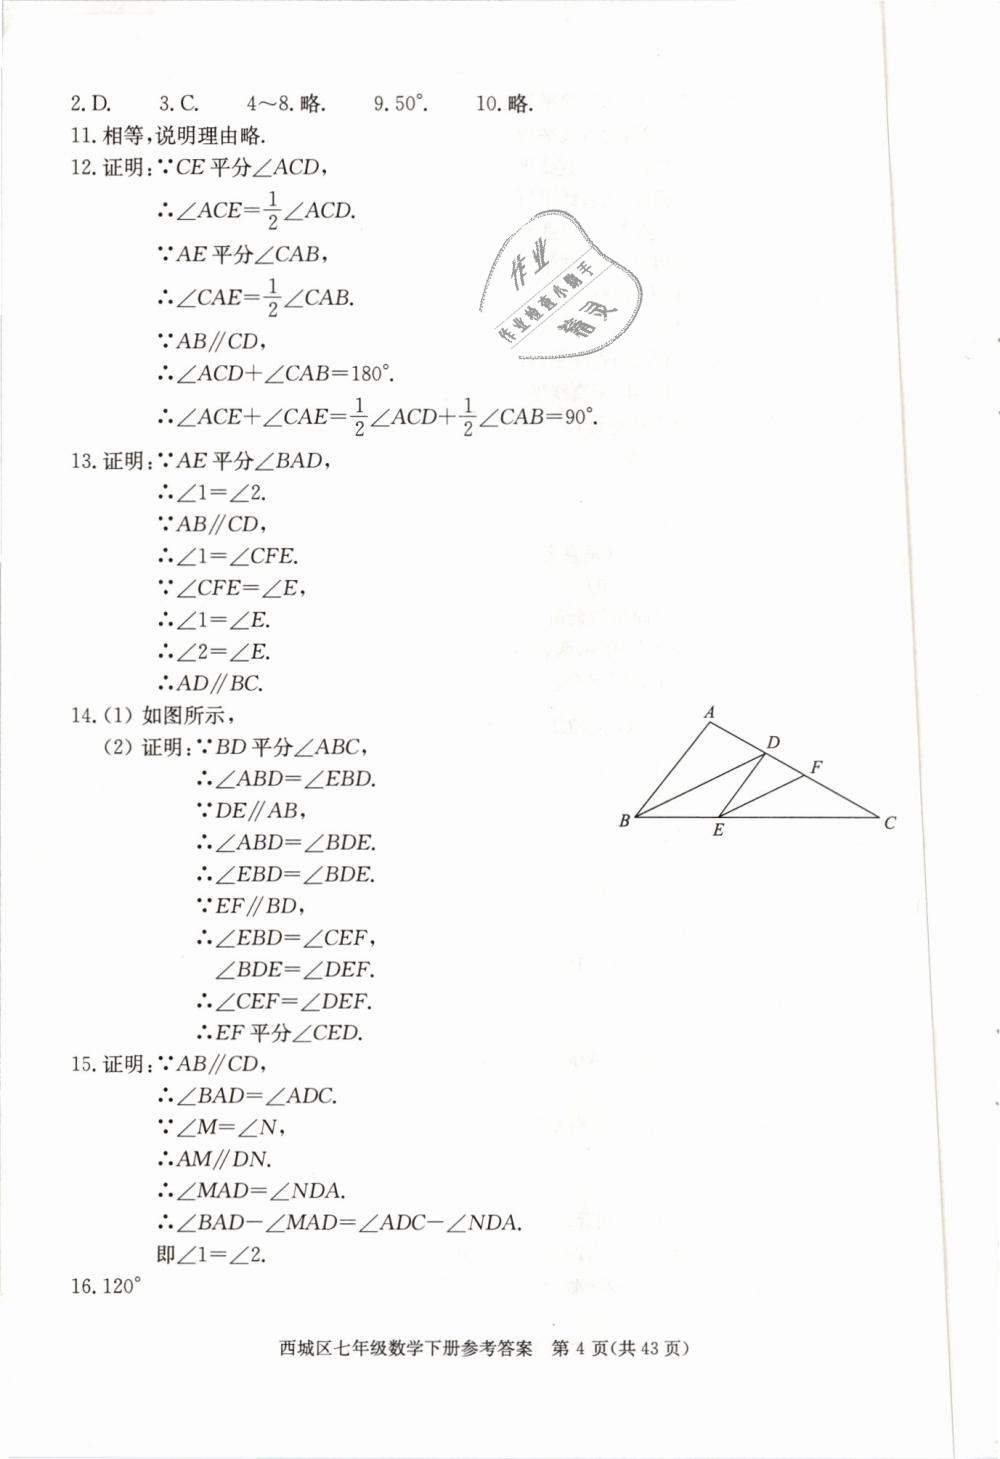 2. D.  3. C.  4～8. 略.  9. 50°.  10. 略.
11. 相等,说明理由略.
12. 证明:∵CE 平分∠ACD,
∴∠ACE=1/2∠ACD.
∵AE 平分∠CAB,
∴∠CAE=1/2∠CAB.
∵AB∥CD,
∴∠ACD+∠CAB=180°.
∴∠ACE+∠CAE=1/2∠ACD+1/2∠CAB=90°.
13. 证明:∵AE 平分∠BAD,
∴∠1=∠2.
∵AB∥CD,
∴∠1=∠CFE.
∵∠CFE=∠E,
∴∠1=∠E.
∴∠2=∠E.
∴AD∥BC.
14. (1) 如图所示,
(2) 证明:∵BD 平分∠ABC,
∴∠ABD=∠EBD.
∵DE∥AB,
∴∠ABD=∠BDE.
∴∠EBD=∠BDE.
∵EF∥BD,
∴∠EBD=∠CEF,
∠BDE=∠DEF.
∴∠CEF=∠DEF.
∴EF 平分∠CED.
A
D
F
B
E
C
15. 证明:∵AB∥CD,
∴∠BAD=∠ADC.
∵∠M=∠N,
∴AM∥DN.
∴∠MAD=∠NDA.
∴∠BAD-∠MAD=∠ADC-∠NDA.
即∠1=∠2.
16. 120°
西城区七年级数学下册参考答案  第 4 页(共 43 页)
作业
作业检查小助手
精灵